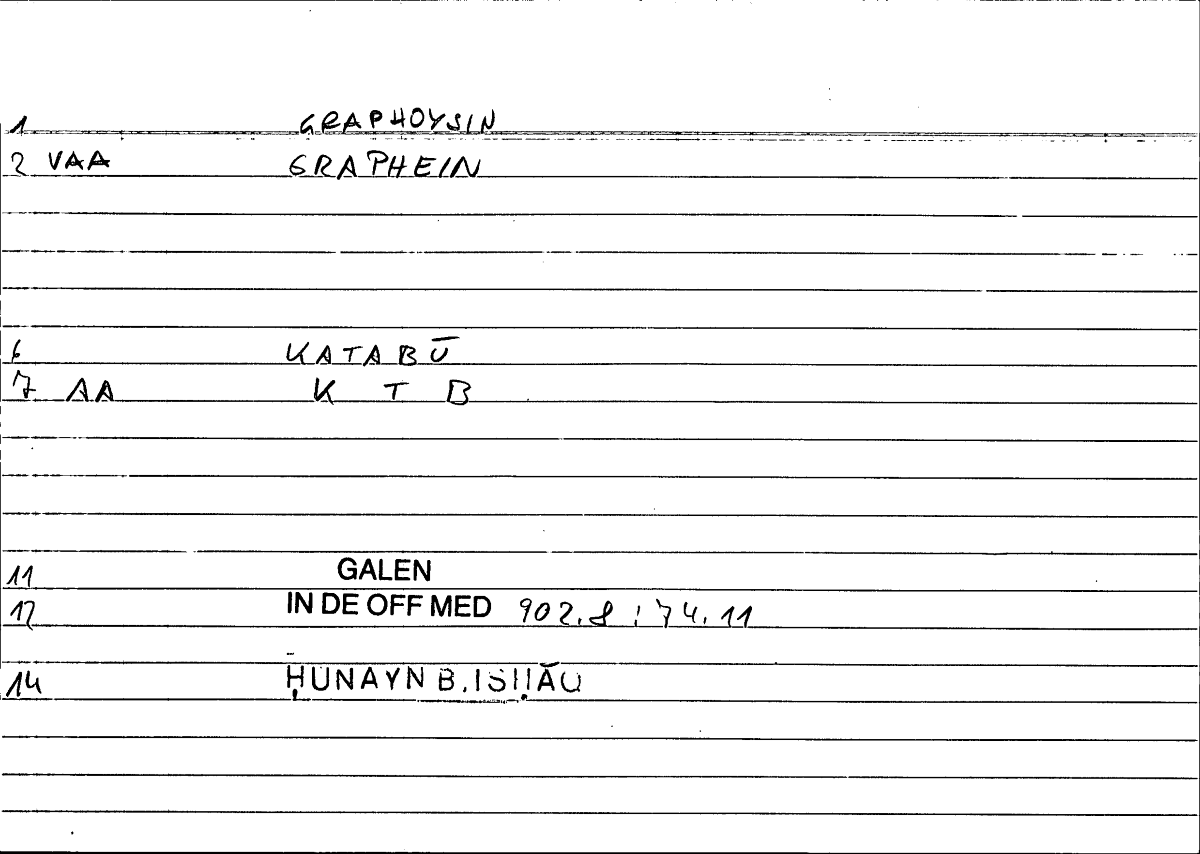 1 GRAPHOYSIN
2 VAA GRAPHEIN
6 KATABŪ
7 AA K T B
11 GALEN
12 IN DE OFF MED 902.8 : 74.11
14 ḤUNAYN B. ISḤĀQ